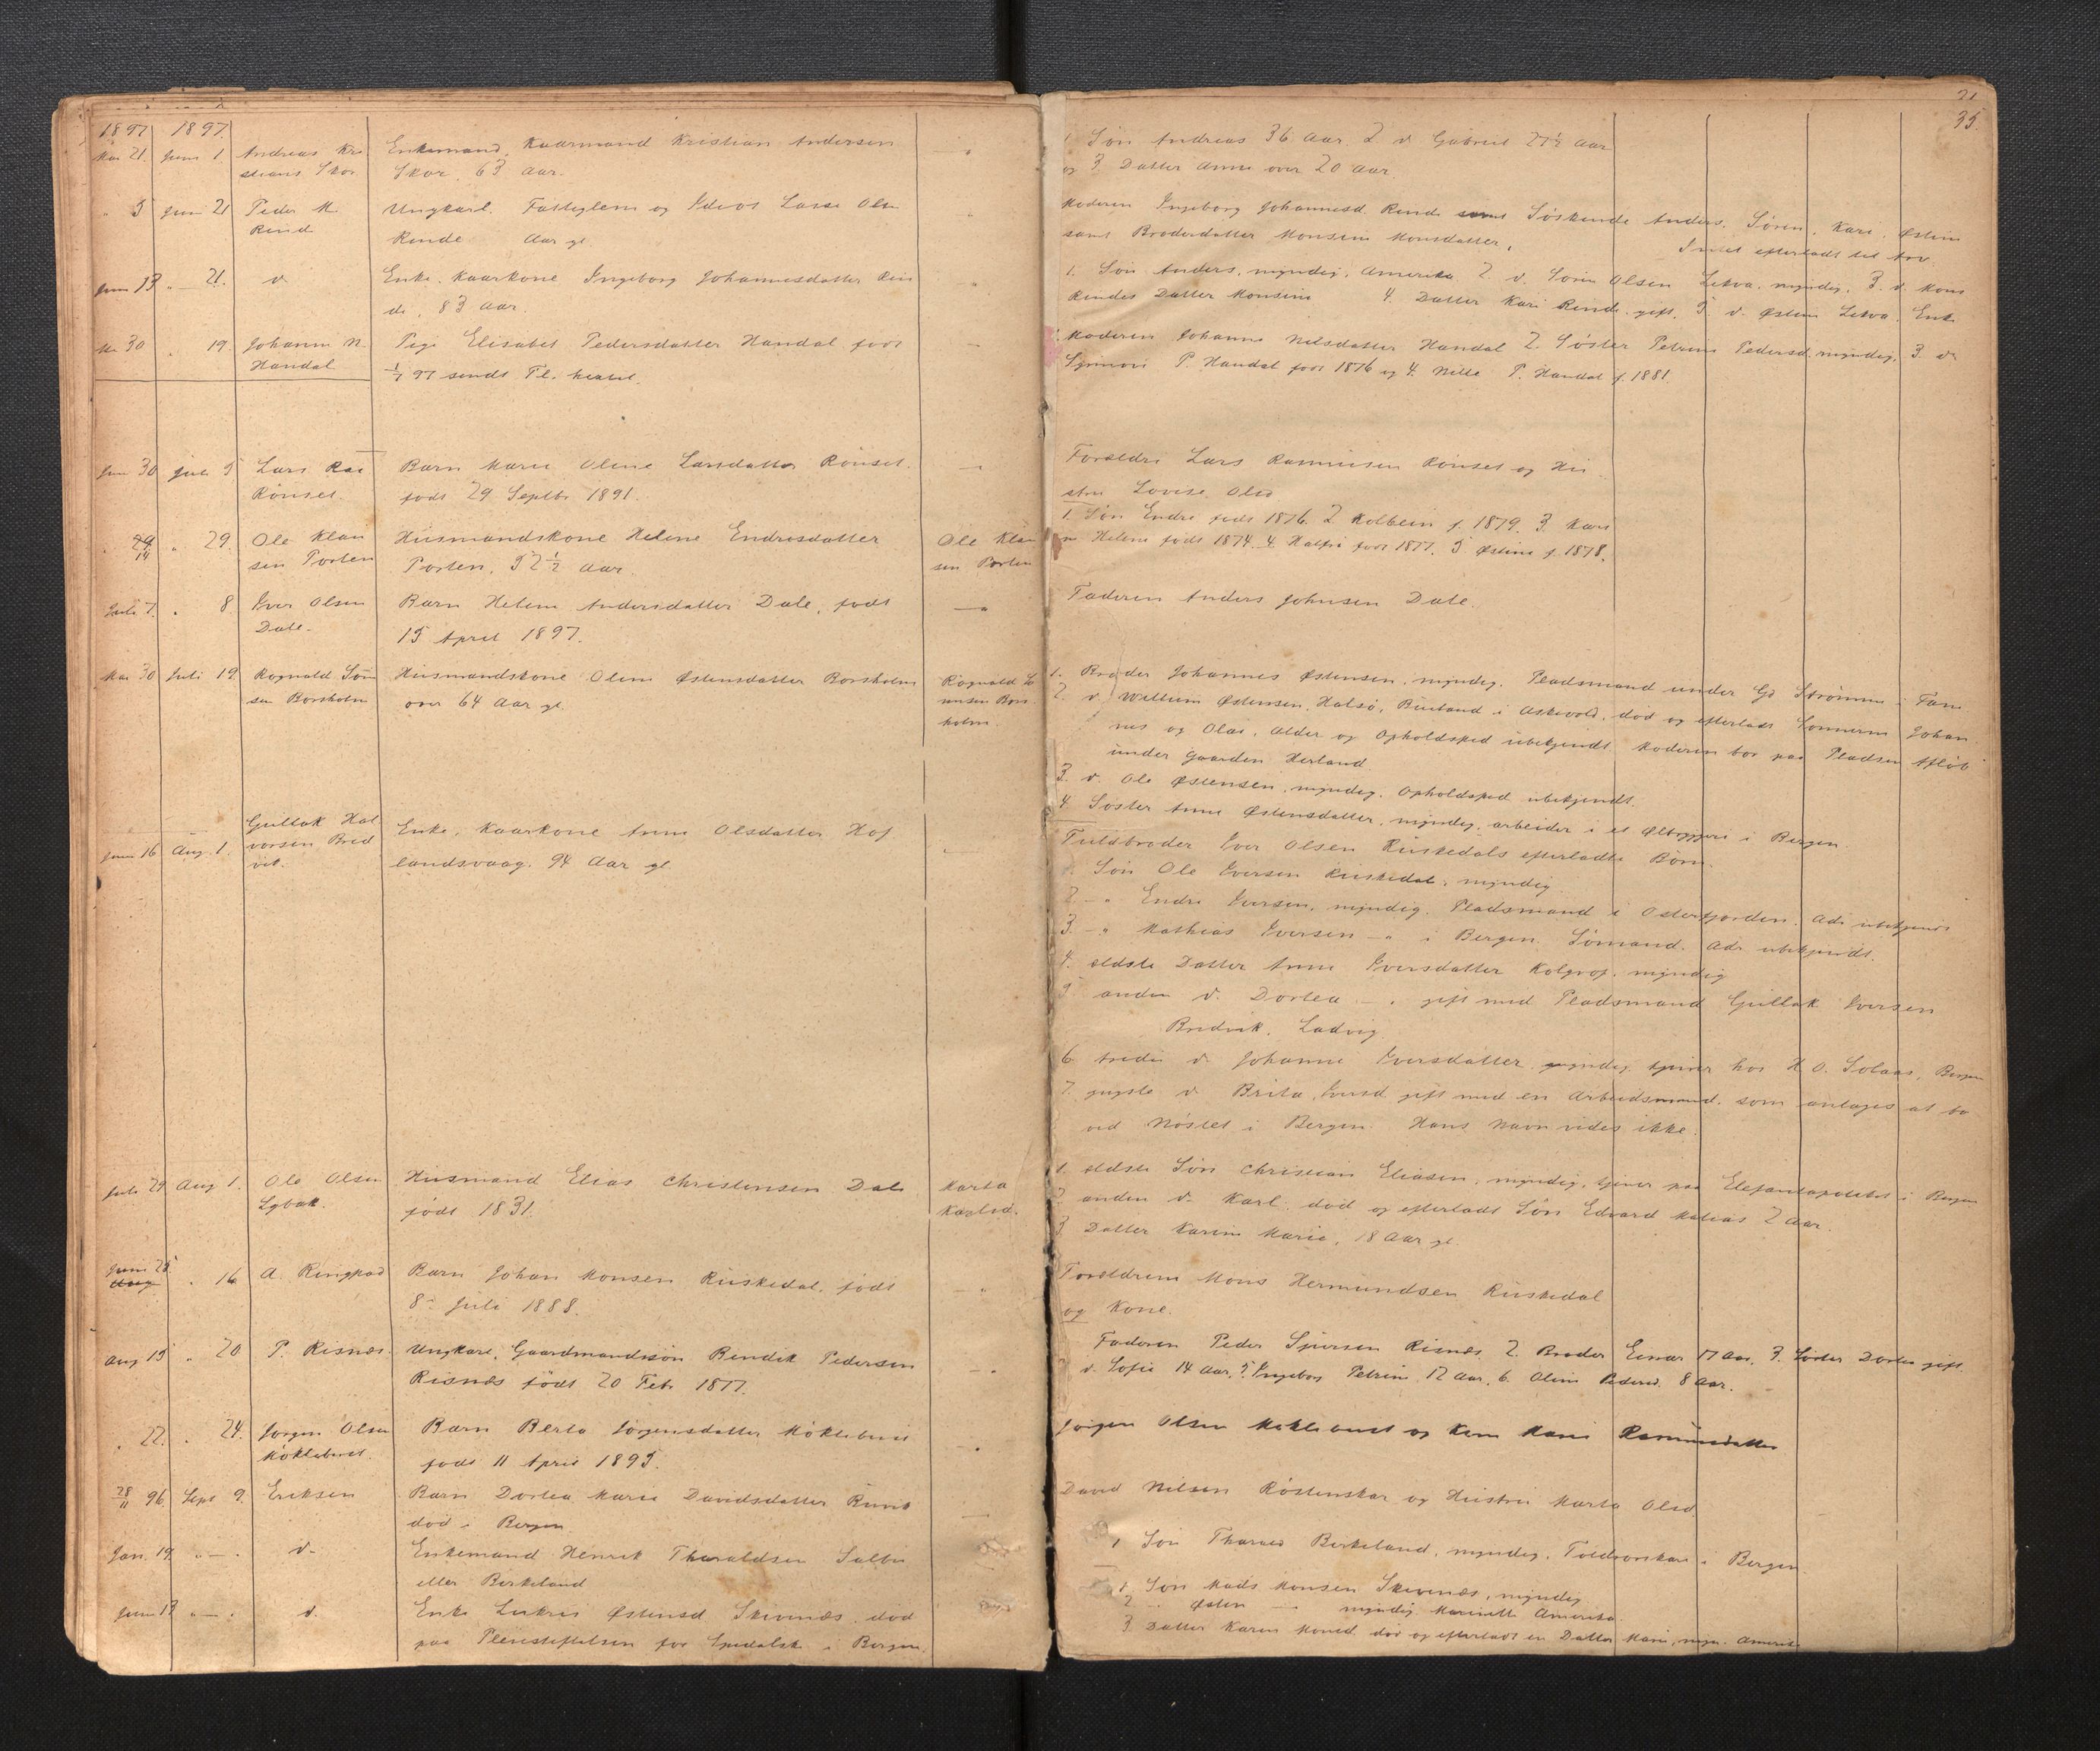 1897 1897.
Mai 21. Juni 1. Andreas Kri Enkemand, Kaarmand Kristian Andersen
stians Skor Skor. 63 Aar.
" 5 Juni 21 Peder M. Ungkarl. Fattiglem og Idiot Lasse Olsen
Rind Rinde Aar gl.
Juni 13 " — 21. d. Enke. Kaarkone Ingeborg Johannesdatter Rin
de, 83 Aar.
30 " 19. Johanne N. Pige Elisabet Pedersdatter Handal født
Handal 97 sendt Tl.
Juni 30 Juli 5 Lars Ras Barn Marie Oline Larsdatter Rönset.
Rönset. født 29 Septbr 1891.
29 " 29. Ole Klau Husmandskone Helene Endresdatter Ole Klau
14 sen Porten Porten, 52 1/2 Aar. sen Porten
Juli 7. " 8 Iver Olsen Barn Helene Andersdatter Dale, født —"
Dale. 15 April 1897.
Mai 30 Juli 19. Rognald Søn Husmandskone Oline Østensdatter Borsholm Rognald
sen Borsholm over 64 Aar gl. Bors
holm.
Juni 16 Aug. 1. Gullak Hal Enke. Kaarkone Anne Olsdatter Hof
vorsen Bred landsvaag. 94 Aar gl.
vik.
Juli 29 Aug 1. Ole Olsen Husmand Elias Christensen Dale Marta
Lybak. født 1831. Karlsd.
Juni 25 " 16 A. Ringpad Barn Johan Monsen Ruskedal, født
Aug 8de Juli 1888.
Aug 15 " 20 P. Risnæs. Ungkarl, Gaardmandssøn Bendik Pedersen
Risnæs født 20 Febr 1877.
" 22. " 24. Jørgen Olsen Barn Berta Jørgensdatter Møklebust
Møklebust. født 11 April 1895.
28/11 96. Sept 9. Eriksen Barn Dortea Marie Davidsdatter
død i Bergen
Jan. 19. " — . d. Enkemand Henrik Tharaldsen Salbu
eller Birkeland
Juni 13 " — . d. Enke Lukris Østensd. Skivenæs, død
paa Pleiestiftelsen for Spedalske i Bergen.
35.
1 Søn Andreas 36 Aar. 2 d. Gabriel 27 1/2 Aar
og 3. Datter Anne over 20 Aar
Moderen Ingeborg Johannesd. Rinde samt Søskende Anders, Søren, Kari, Østine
samt Broderdatter Monsine Monsdatter. Intet efterladt til Arv.
1. Søn Anders, myndig, Amerika 2. d. Søren Olsen Letva, myndig, 3. d. Mons
Rindes Datter Monsine 4. Datter Kari Rinde, gift. 5 d. Østine Letva. Enke
Moderen Johanne Nilsdatter Handal 2. Søster Petrine Pedersd. myndig. 3. d.
P. Handal født 1876 og 4. Nille P. Handal f. 1881.
Forældre Lars Rasmusen Rönset og Hu
stru Lovise Olsd
1. Søn Endre født 1876. 2 Kolbein f. 1879. 3. Kare
n Helene født 1874. 4. født 1877. 5 Østine f. 1878.
Faderen Anders Johnsen Dale.
1. Broder Johannes Østensen, myndig. Pladsmand under Gd Strömme i Fane
2. d. Willum Østensen, Halsö, Buland i Askevold, død og efterladt Sønnerne Johan
nes og Olai, Alder og Opholdsted ubekjendt. Moderen bor paa Pladsen
under Gaarden Herland
3. d. Ole Østensen, myndig. Opholdsted ubekjendt.
4 Søster Anne Østensdatter, myndig, arbeider i et Ølbryggeri i Bergen
Fuldbroder Iver Olsen Ruskedals efterladte Børn
1. Søn Ole Iversen Ruskedal, myndig
2. — " Endre Iversen, myndig. Pladsmand i Osterfjorden. Adr ubekjendt
3. — " Mathias Iversen — " i Bergen. Sömand. Adr ubekjendt.
4. ældste Datter Anne Iversdatter Kolgrof, myndig
5 anden d. Dortea — . gift med Pladsmand Gullak Iversen
Bredvik, Ladvig
6. tredie d. Johanne Iversdatter myndig tjener hos H O. Solaas, Bergen
7. yngste d. Brita Iversd gift med en Arbeidsmand, som antages at bo
ved Nöstet i Bergen. Hans Navn vides ikke.
1. ældste Søn Christian Eliasen, myndig, tjener paa Elefantapoteket i Bergen
2 anden d. Karl, død og efterladt Søn Edvard Matias 2 Aar.
3 Datter Karen Marie, 18 Aar gl.
Forældrene Mons Hermundsen Ruskedal
og Kone.
Faderen Peder Sjursen Risnæs 2. Broder Einar 17 Aar, 3. Søster Dortea gift
d. Sofie 14 Aar, 5. Ingeborg Petrine 12 Aar, 6. Oline Pedersd. 8 Aar.
Jørgen Olsen Møklebust og Kone Marie Rasmusdatter
David Nilsen Röstenskar og Hustru Marta Olsd.
1 Søn Tharald Birkeland, myndig. i Bergen
1. Søn Mads Monsen Skivenæs, myndig
2 — Østen — myndig Amerika.
3 Datter Karen Monsd. død og efterladt en Datter Marie, myn. Amerika